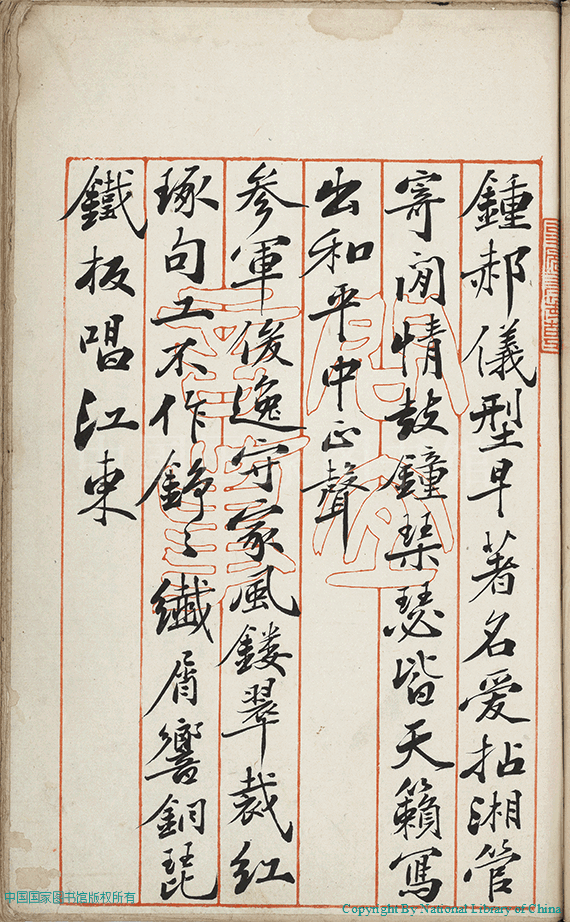 鍾郝儀型早著名愛拈湘管
寄閒情鼓鐘琹瑟皆天籟寫
出和平中正聲
參軍俊逸守家風鏤翠裁紅
琢句工不作錚〻纖屑響銅琵
鐵板唱江東
中国国家图书馆版权所有
Copyright By National Library of China